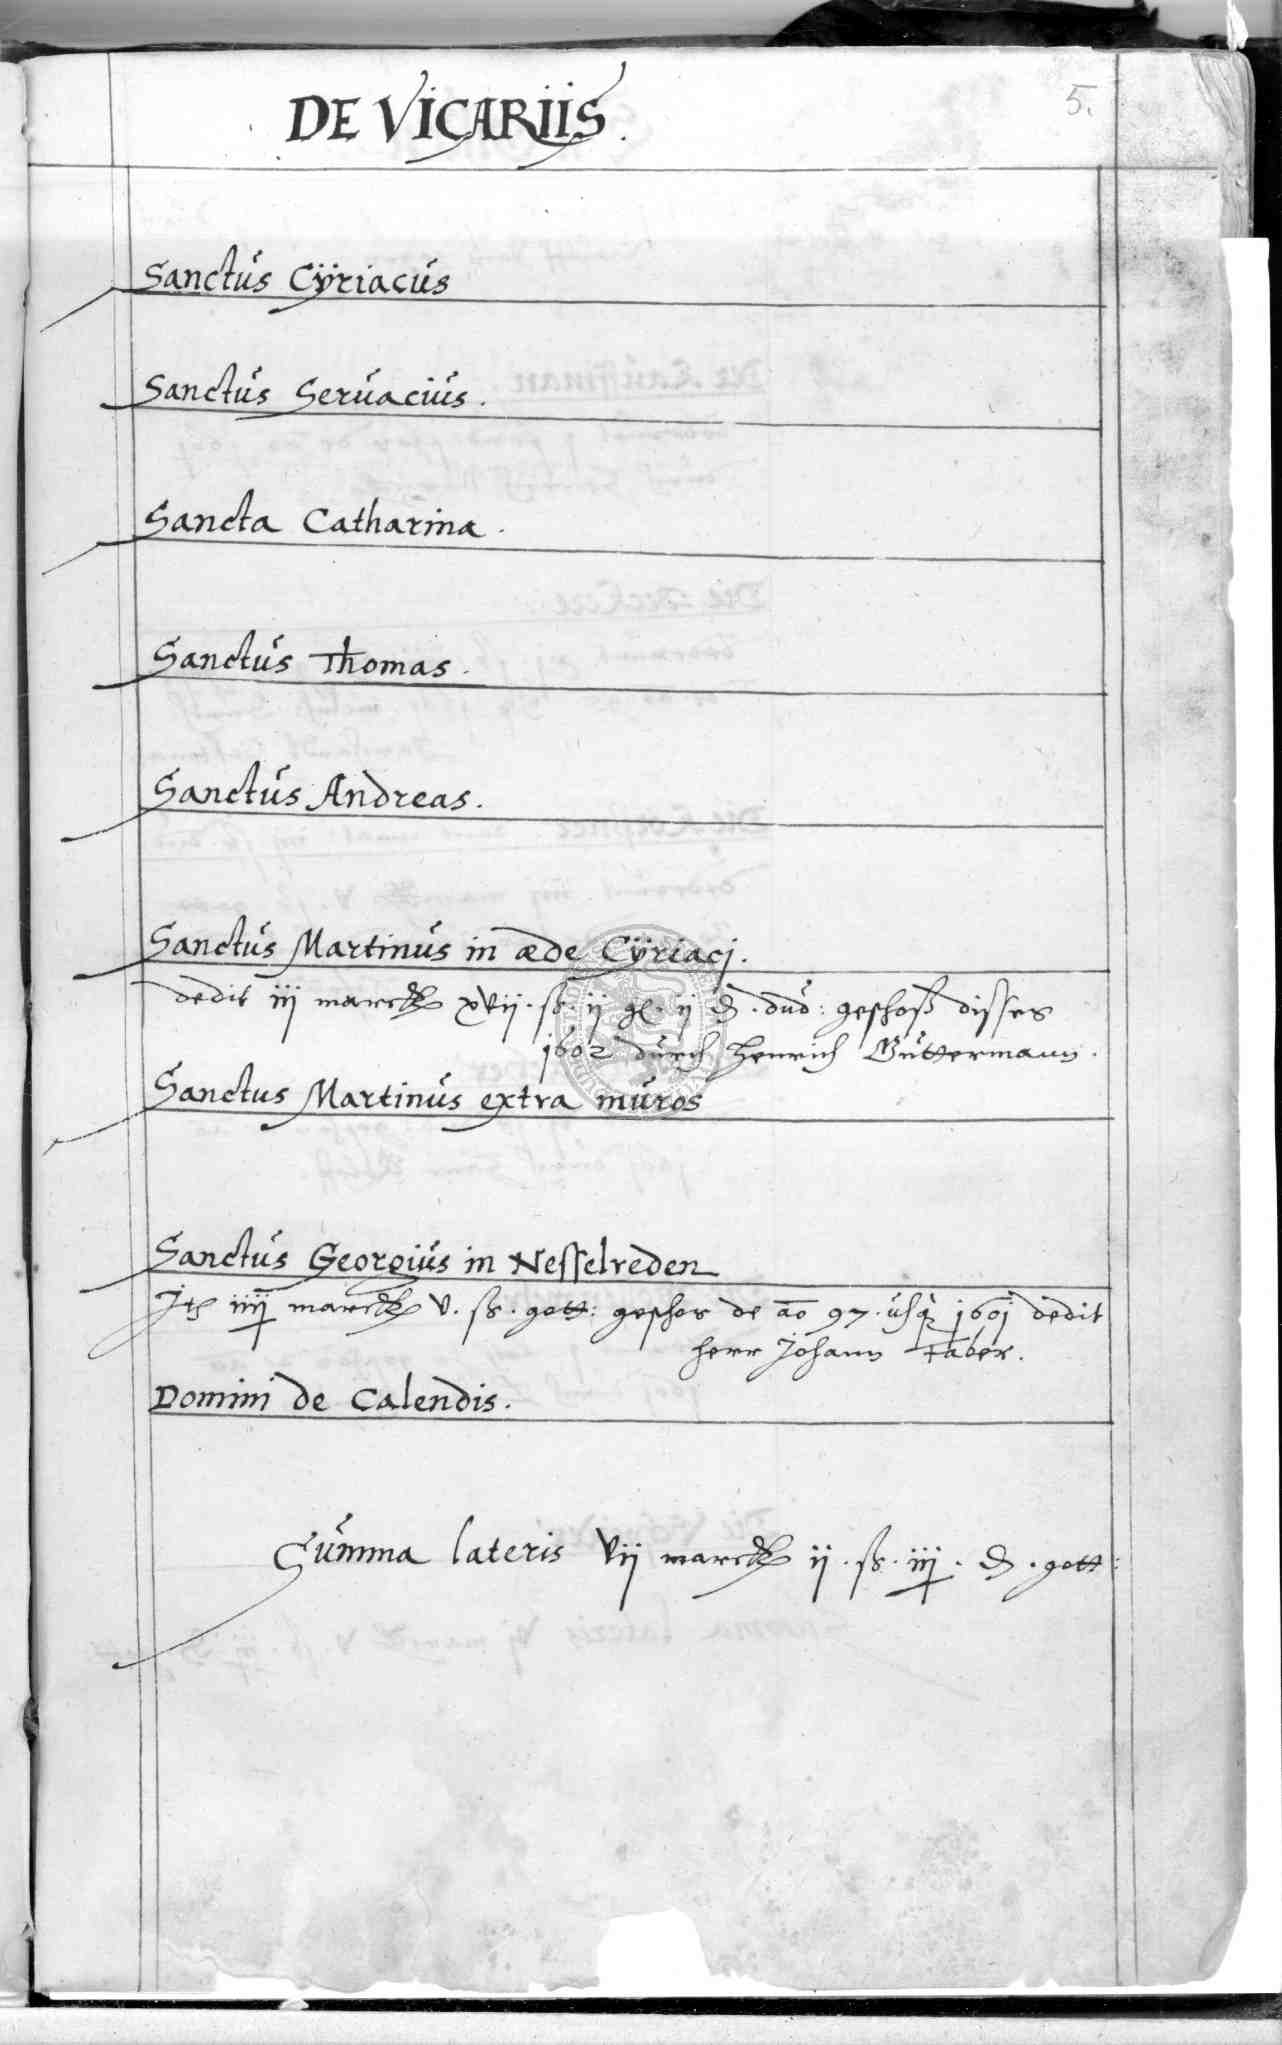 DE VICARIIS.
5.
Sanctus Cÿriacus
Sanctus Seruacius.
Sancta Catharina.
Sanctus Thomas.
Sanctus Andreas.
Sanctus Martinus in æde Cÿriacj.
dedit iij marck xvij. ß. ij gl. ij ₰. dud: geschoß disses
1602 durch Henrich Guttermann.
Sanctus Martinus extra muros
Sanctus Georgius in Nesselreden
marck v. ß. gott: geschos de ao 97. usq 1601 dedit
herr Johann Faber.
Domini de Calendis.
Summa lateris vij marck ij. ß. iij. ₰. gott: